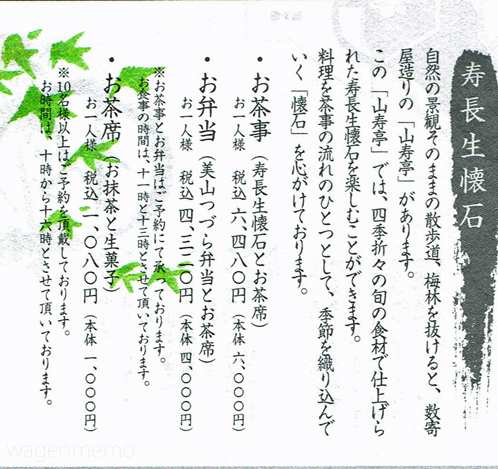 寿長生懐石
自然の景観そのままの散歩道、梅林を抜けると、数寄
屋造りの「山寿亭」があります。
この「山寿亭」では、四季折々の旬の食材で仕上げら
れた寿長生懐石を楽しむことができます。
料理を茶事の流れのひとつとして、季節を織り込んで
いく「懐石」を心がけております。
・お茶事（寿長生懐石とお茶席）
お一人様　税込 六、四八〇円（本体 六、〇〇〇円）
・お弁当（美山つづら弁当とお茶席）
お一人様　税込 四、三二〇円（本体 四、〇〇〇円）
※お茶事とお弁当はご予約にて承っております。
お食事の時間は、十一時と十三時とさせて頂いております。
・お茶席（お抹茶と生菓子）
お一人様　税込 一、〇八〇円（本体 一、〇〇〇円）
※10名様以上はご予約を頂戴しております。
お時間は、十時から十六時とさせて頂いております。
wagenmemo